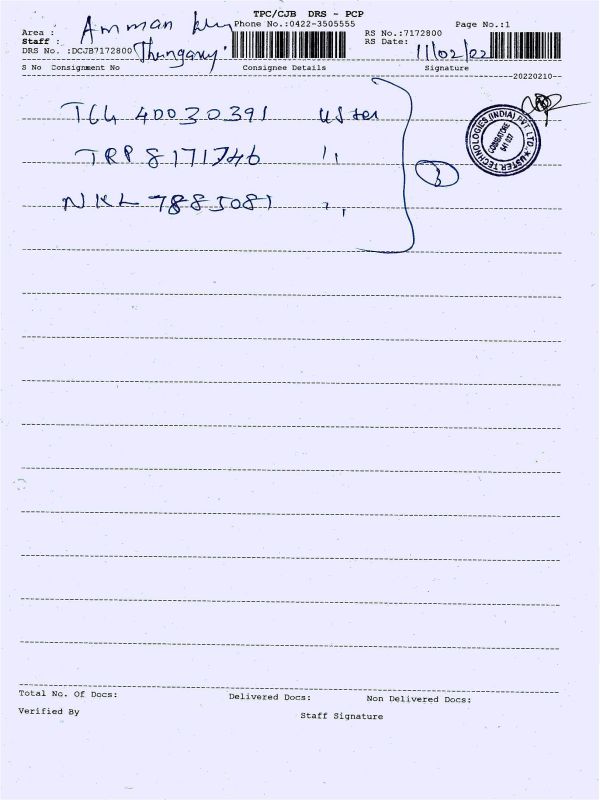 TPC/CJB DRS - PCP
Area : Amman
Phone No.:0422-3505555
Page No.:1
Staff :
RS No.:7172800
RS Date: 11/02/22
DRS No. :DCJB7172800
S No Consignment No Consignee Details Signature
20220210
TCG 40030391 Uster
TRP 8171746 ,,
NKL 7885081 ,,
3
USTER TECHNOLOGIES (INDIA) PVT. LTD.
COIMBATORE
641 037
Total No. Of Docs: Delivered Docs: Non Delivered Docs:
Verified By Staff Signature